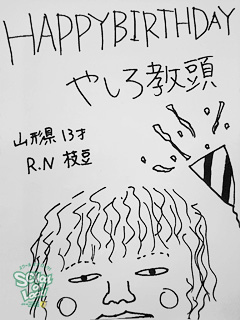 HAPPYBIRTHDAY
やしろ教頭
山形県 13才
R.N 枝豆